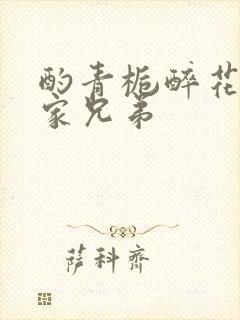 酌青栀醉花
家兄弟
萨科齐